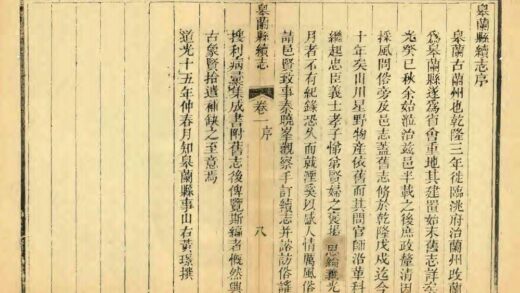 皋蘭縣續志序
皋蘭古蘭州也乾隆三年徙臨洮府治蘭州改蘭
爲皋蘭縣遂爲省會重地其建置始末舊志詳
光癸巳秋余始涖治兹邑半載之後庶政釐清因
採風問俗旁及邑志蓋舊志脩於乾隆戊戌迄今
十年矣山川星野物産依舊而其間官師沿革科
繼起忠臣義士孝子悌弟賢婦之褒揚 恩綸
月者不有紀錄恐久而就湮奚以感人情厲風俗
請邑賢致事秦曉峯觀察手訂續志并諮訪俗
利病彙集成書附舊志後俾覽斯編者慨然興
古象賢拾遺補缺之至意焉
道光十五年仲春月知皋蘭縣事山右黃璟撰
皋蘭縣續志 卷一序 八